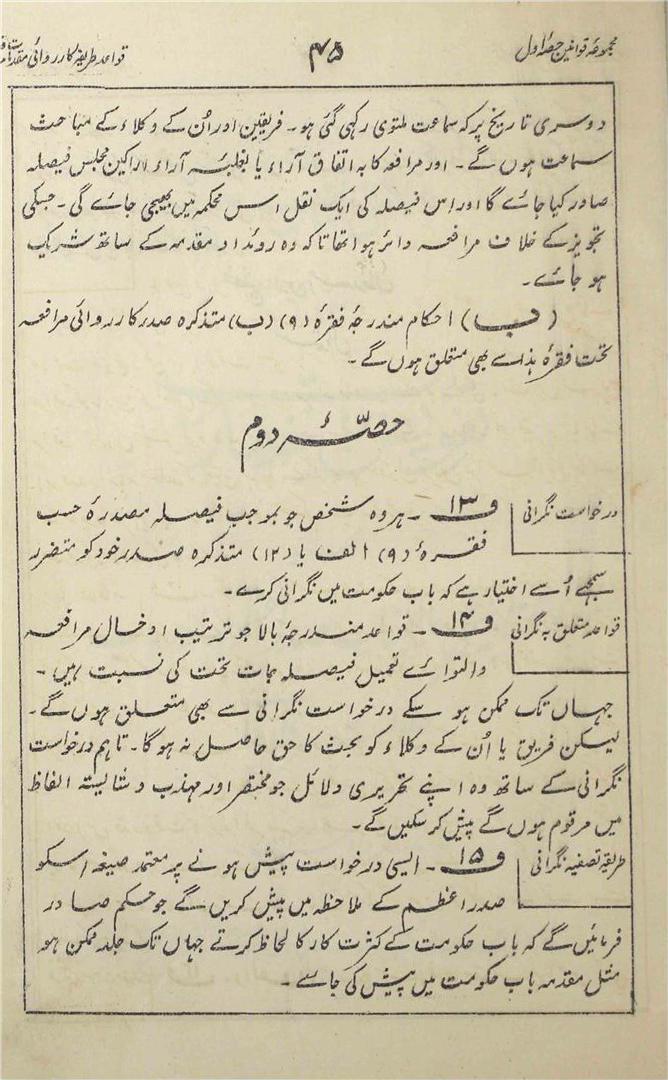 مجموعۂ قوانین حصۂ اول
۴۵
قواعد طریقۂ کارروائی مقدمات
دوسری تاریخ پر کہ سماعت ملتوی رکھی گئی ہو۔ فریقین اور اُن کے وکلاء کے مباحث
سماعت ہوں گے۔ اور مرافعہ کا بہ اتفاق آراء یا بغلبۂ آراء اراکین مجلس فیصلہ
صادر کیا جائے گا اور اس فیصلہ کی ایک نقل اس محکمہ میں بھیجی جائے گی۔ جسکی
تجویز کے خلاف مرافعہ دائر ہوا تھا تاکہ وہ روئداد مقدمہ کے ساتھ شریک
ہو جائے۔
(ب) احکام مندرجۂ فقرۂ (۹) (ب) متذکرہ صدر کارروائی مرافعہ
تحت فقرۂ ہذا سے بھی متعلق ہوں گے۔
حصّۂ دوم
درخواست نگرانی
ف ۱۳۔ ہر وہ شخص جو بموجب فیصلہ مصدرۂ حسب
فقرۂ (۹) الف یا (۱۲) متذکرہ صدر خود کو متضرر
سمجھے اُسے اختیار ہے کہ باب حکومت میں نگرانی کرے۔
قواعد متعلق بہ نگرانی
ف ۱۴۔ قواعد مندرجۂ بالا جو ترتیب ادخال مرافعہ
والتوائے تعمیل فیصلہ جات تحت کی نسبت ہیں۔
جہاں تک ممکن ہو سکے درخواست نگرانی سے بھی متعلق ہوں گے۔
لیکن فریق یا اُن کے وکلاء کو بحث کا حق حاصل نہ ہو گا۔ تاہم درخواست
نگرانی کے ساتھ وہ اپنے تحریری دلائل جو مختصر اور مہذب و شایستہ الفاظ
میں مرقوم ہوں گے پیش کر سکیں گے۔
طریقۂ تصفیہ نگرانی
ف ۱۵۔ ایسی درخواست پیش ہونے پر معتمد صیغہ اسکو
صدر اعظم کے ملاحظہ میں پیش کریں گے جو حکم صادر
فرمائیں گے کہ باب حکومت کے کثرت کار کا لحاظ کرتے جہاں تک جلد ممکن ہو
مثل مقدمہ باب حکومت میں پیش کی جائے۔